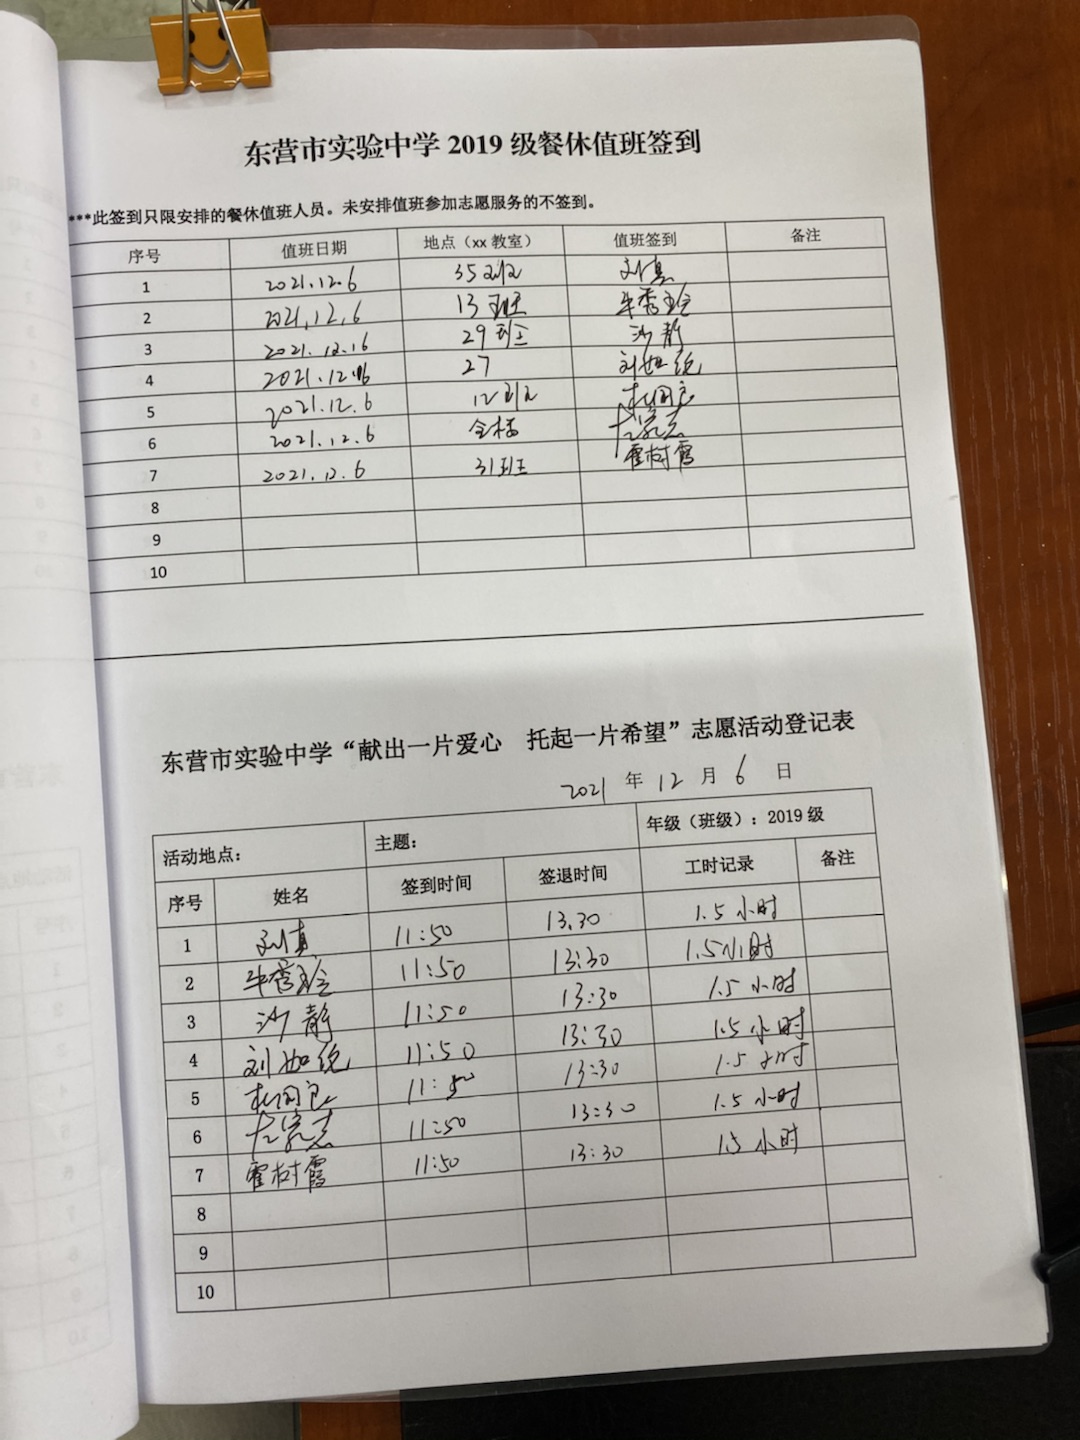 东营市实验中学2019级餐休值班签到
***此签到只限安排的餐休值班人员。未安排值班参加志愿服务的不签到。
序号 值班日期 地点（xx教室） 值班签到 备注
1 2021.12.6 35班 刘真
2 2021.12.6 13班 牛秀玲
3 2021.12.16 29班 沙静
4 2021.12.16 27 刘如锐
5 2021.12.6 12班
6 2021.12.6 全楼
7 2021.12.6 31班 霍树霞
8
9
10
东营市实验中学“献出一片爱心 托起一片希望”志愿活动登记表
2021 年 12 月 6 日
活动地点： 主题： 年级（班级）：2019级
序号 姓名 签到时间 签退时间 工时记录 备注
1 刘真 11:50 13.30 1.5小时
2 牛秀玲 11:50 13:30 1.5小时
3 沙静 11:50 13:30 1.5小时
4 刘如锐 11:50 13:30 1.5小时
5 11:50 13:30 1.5小时
6 11:50 13:30 1.5小时
7 霍树霞 11:50 13:30 1.5小时
8
9
10